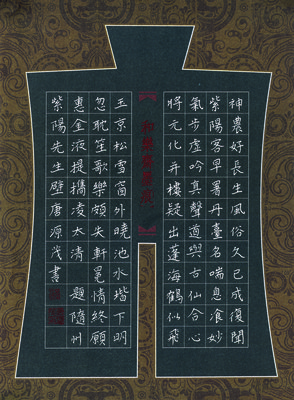 神農好長生風俗久已成復聞
紫陽客早署丹臺名喘息飡妙
氣步虛吟真聲道與古仙合心
將元化并樓疑出蓬海鶴似飛
玉京松雪窗外曉池水階下明
忽耽笙歌樂頗失軒冕情終願
惠金液提攜凌太清 題隨州
紫陽先生壁唐源茂書